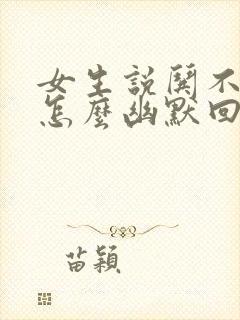 女生說關不
怎麼幽默回
苗穎